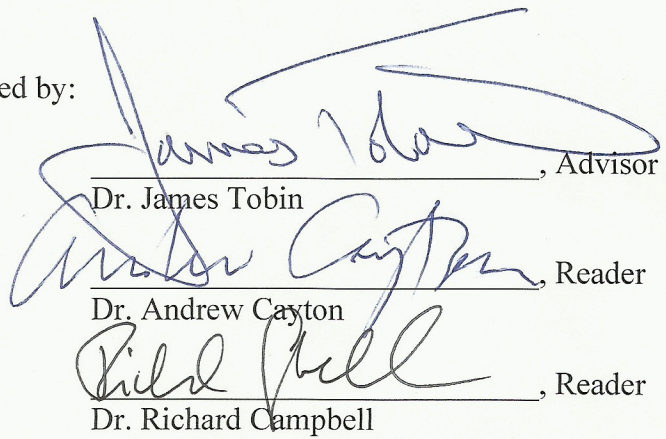 ed by:
James Tobin
, Advisor
Dr. James Tobin
Andrew Cayton
, Reader
Dr. Andrew Cayton
Richard Campbell
, Reader
Dr. Richard Campbell